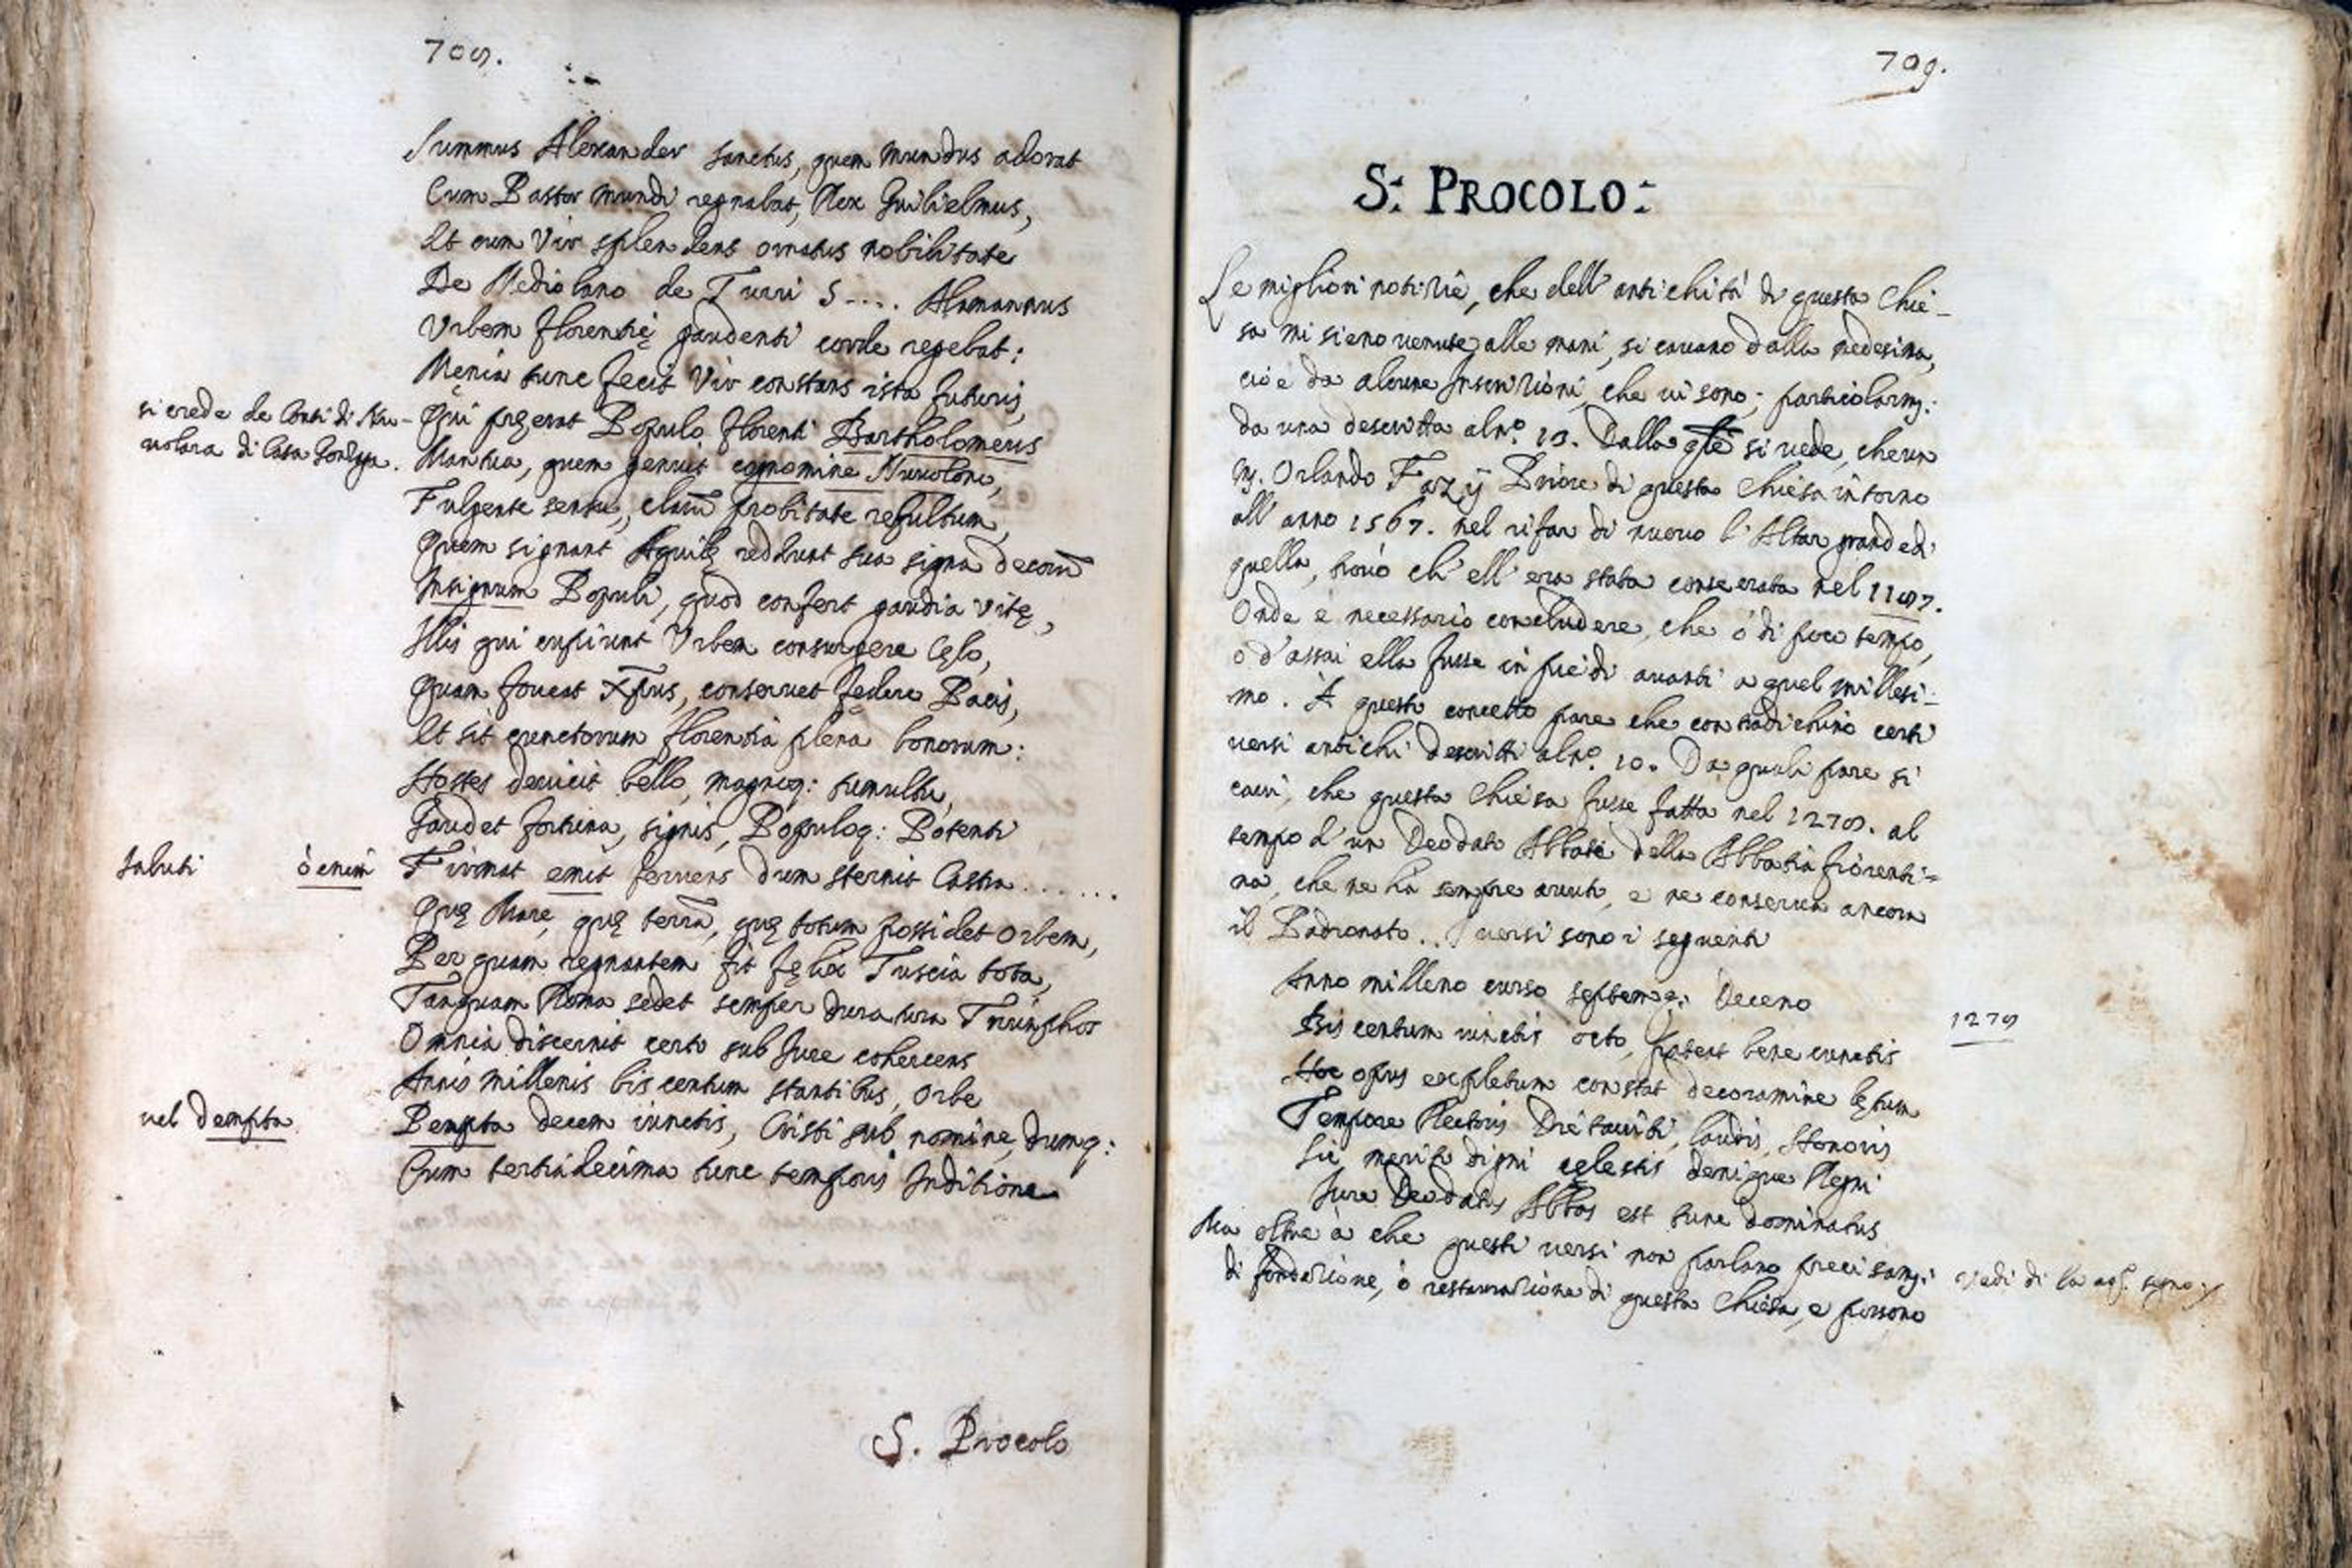 708.
Summus Alexander Sanctus, quem mundus adorat
Cum Pastor mundi regnabat, Rex Guilielmus,
Et cum Vir splendens ornatus nobilitate
De Mediolano de Turri S.... Alamannus
Urbem Florentię gaudenti corde regebat:
Męnia tunc fecit Vir constans ista futuris,
si crede de Conti di Nu-
volara di Casa Gonzaga.
Qui pręerat Populo Florenti Bartholomeus
Mantua, quem genuit cognomine Nuvolone,
Fulgente sensu, claru probitate refultum,
Quem signant Aquilę reddunt sua signa decoru
Insignum Populi, quod confert gaudia vitę,
Illis qui cupiunt Urbem consurgere Cęlo,
Quam foveat Xpus, conservet fędere Pacis,
Et sit cunctorum Florentia plena bonorum:
Hostes devicit bello, magnoq: tumultu,
Gaudet fortuna, signis, Populoq: Potenti
Saluti ò enim
Firmat emit fervens dum sternit Castra.......
Quę Mare, quę terrã, quę totum possidet orbem,
Per quam regnantem fit fęlix Tuscia tota,
Tanquam Roma sedet semper dura tura Triumphos
Omnia discernit certo sub Jure cohercens
Annis millenis bis centum stantibus, orbe
vel dempta
Pempta decem iunctis, Cristi sub nomine, dumq:
Cum tertiadecima tunc temporis Inditione
S. Procolo
709.
S: PROCOLO:
Le migliori notizie, che dell'antichità di questa Chie-
sa mi sieno venute alle mani, si cavano dalla medesima,
cioè da alcune Inscrizioni, che vi sono; particolarm:
da una descritta al no. 13. Dalla qle si vede, che un
M. Orlando Fazÿ Priore di questa Chiesa intorno
all'anno 1567. nel rifar di nuovo l'Altar grande di
quella, trovò ch'ell'era stata consecrata nel 1187.
Onde è necessario concludere, che ò di poco tempo,
o d'assai ella fusse in piedi avanti a quel millesi-
mo. A questo concetto pare che contradichino certi
versi antichi descritti al no. 10. Da quali pare si
cavi, che questa Chiesa fusse fatta nel 1278. al
tempo d'un Deodato Abbate della Abbatia fiorenti=
na, che ne hà sempre avuto, e ne conserva ancora
il Padronato.. I versi sono i seguenti
Anno milleno curso septemq: Deceno
Bis centum iunctis octo, patent bene cunctis
1278
Hoc opus expletum constat decoramine lętum
Tempore Rectoris Dietaviti, laudis, Honoris
Sic merito digni cęlestis denique Regni
Jure Deodatus Abbas est tunc dominatus
Ma oltre à che questi versi non parlano precisam:
di fondazione, ò restaurazione di questa Chiesa, e possono
vedi di la